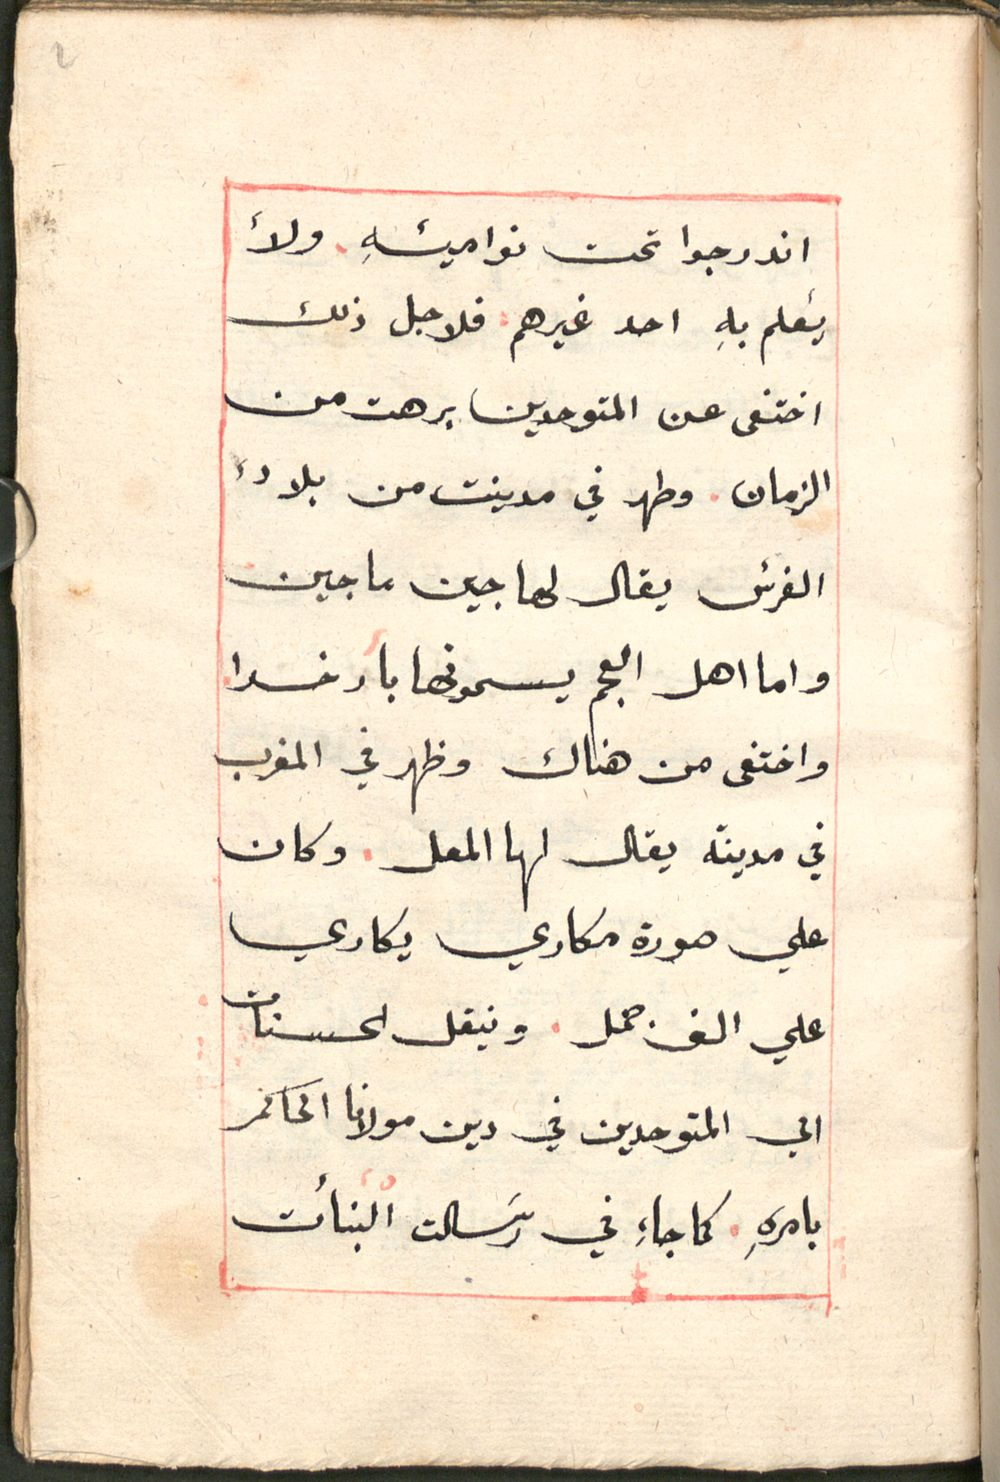 اندرجوا تحت نواميسهِ. ولا
يعلم بهِ احد غيرهم: فلاجل ذلك
اختفى عن المتوحدين برهت من
الزمان. وطهر في مدينت من بلاد
الفرس يقال لها جين ماجين
واما اهل العجم يسمونها بار خدا
واختفى من هناك وظهر في المغرب
في مدينة يقال لها المعل. وكان
علي صورة مكاري يكاري
علي الف جمل. وينقل لحسنات
الي المتوحدين في دين مولانا الحاكم
بامرهِ. كما جاءِ في رسالت البنات